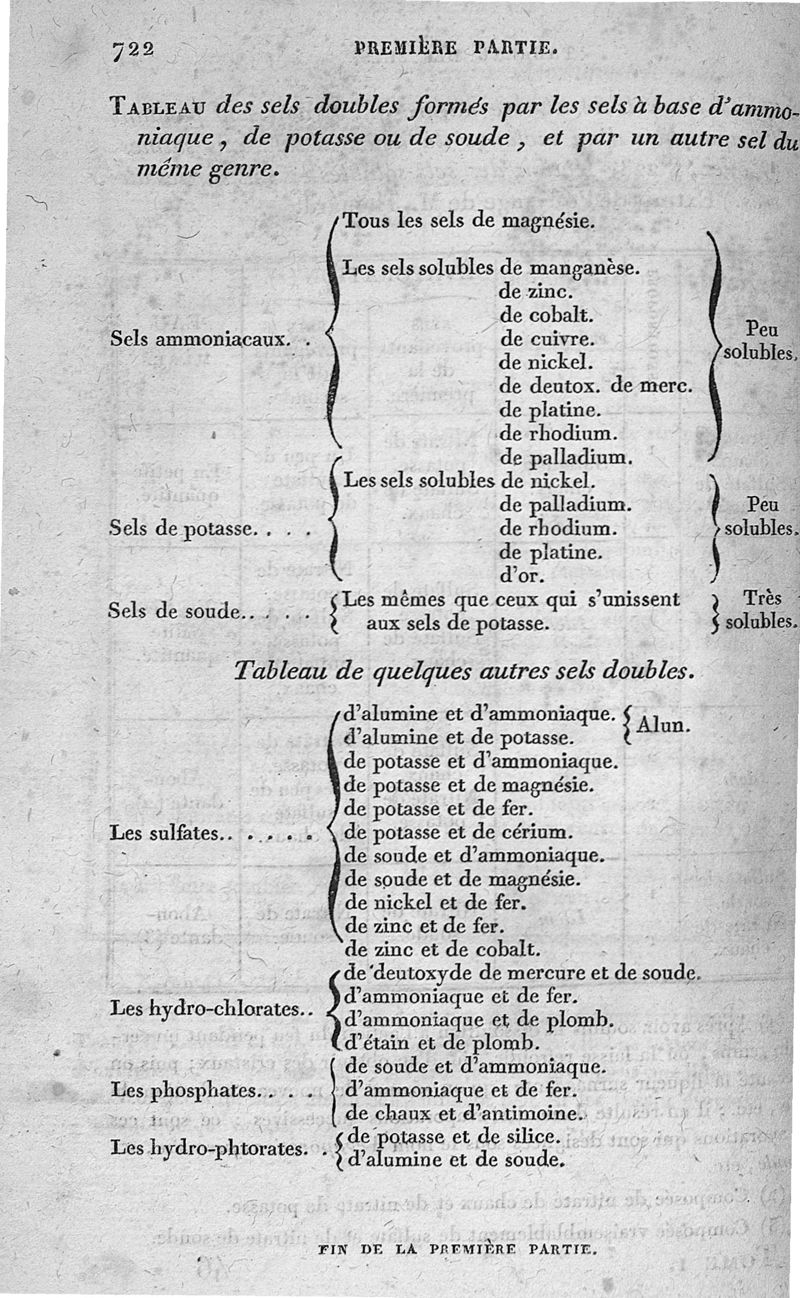 722 PREMIÈRE PARTIE.
TABLEAU des sels doubles formés par les sels à base d'ammo-
niaque, de potasse ou de soude, et par un autre sel du
même genre.
Tous les sels de magnésie.
Les sels solubles de manganèse.
de zinc.
de cobalt.
Sels ammoniacaux. . de cuivre. Peu
de nickel. solubles.
de deutox. de merc.
de platine.
de rhodium.
de palladium.
Les sels solubles de nickel.
de palladium. Peu
Sels de potasse. . . . de rhodium. solubles.
de platine.
d'or.
Sels de soude. . . . . Les mêmes que ceux qui s'unissent Très
aux sels de potasse. solubles.
Tableau de quelques autres sels doubles.
d'alumine et d'ammoniaque. Alun.
d'alumine et de potasse.
de potasse et d'ammoniaque.
de potasse et de magnésie.
de potasse et de fer.
Les sulfates. . . . . . de potasse et de cérium.
de soude et d'ammoniaque.
de soude et de magnésie.
de nickel et de fer.
de zinc et de fer.
de zinc et de cobalt.
de deutoxyde de mercure et de soude.
Les hydro-chlorates. . d'ammoniaque et de fer.
d'ammoniaque et de plomb.
d'étain et de plomb.
de soude et d'ammoniaque.
Les phosphates. . . . d'ammoniaque et de fer.
de chaux et d'antimoine.
Les hydro-phtorates. . de potasse et de silice.
d'alumine et de soude.
FIN DE LA PREMIÈRE PARTIE.